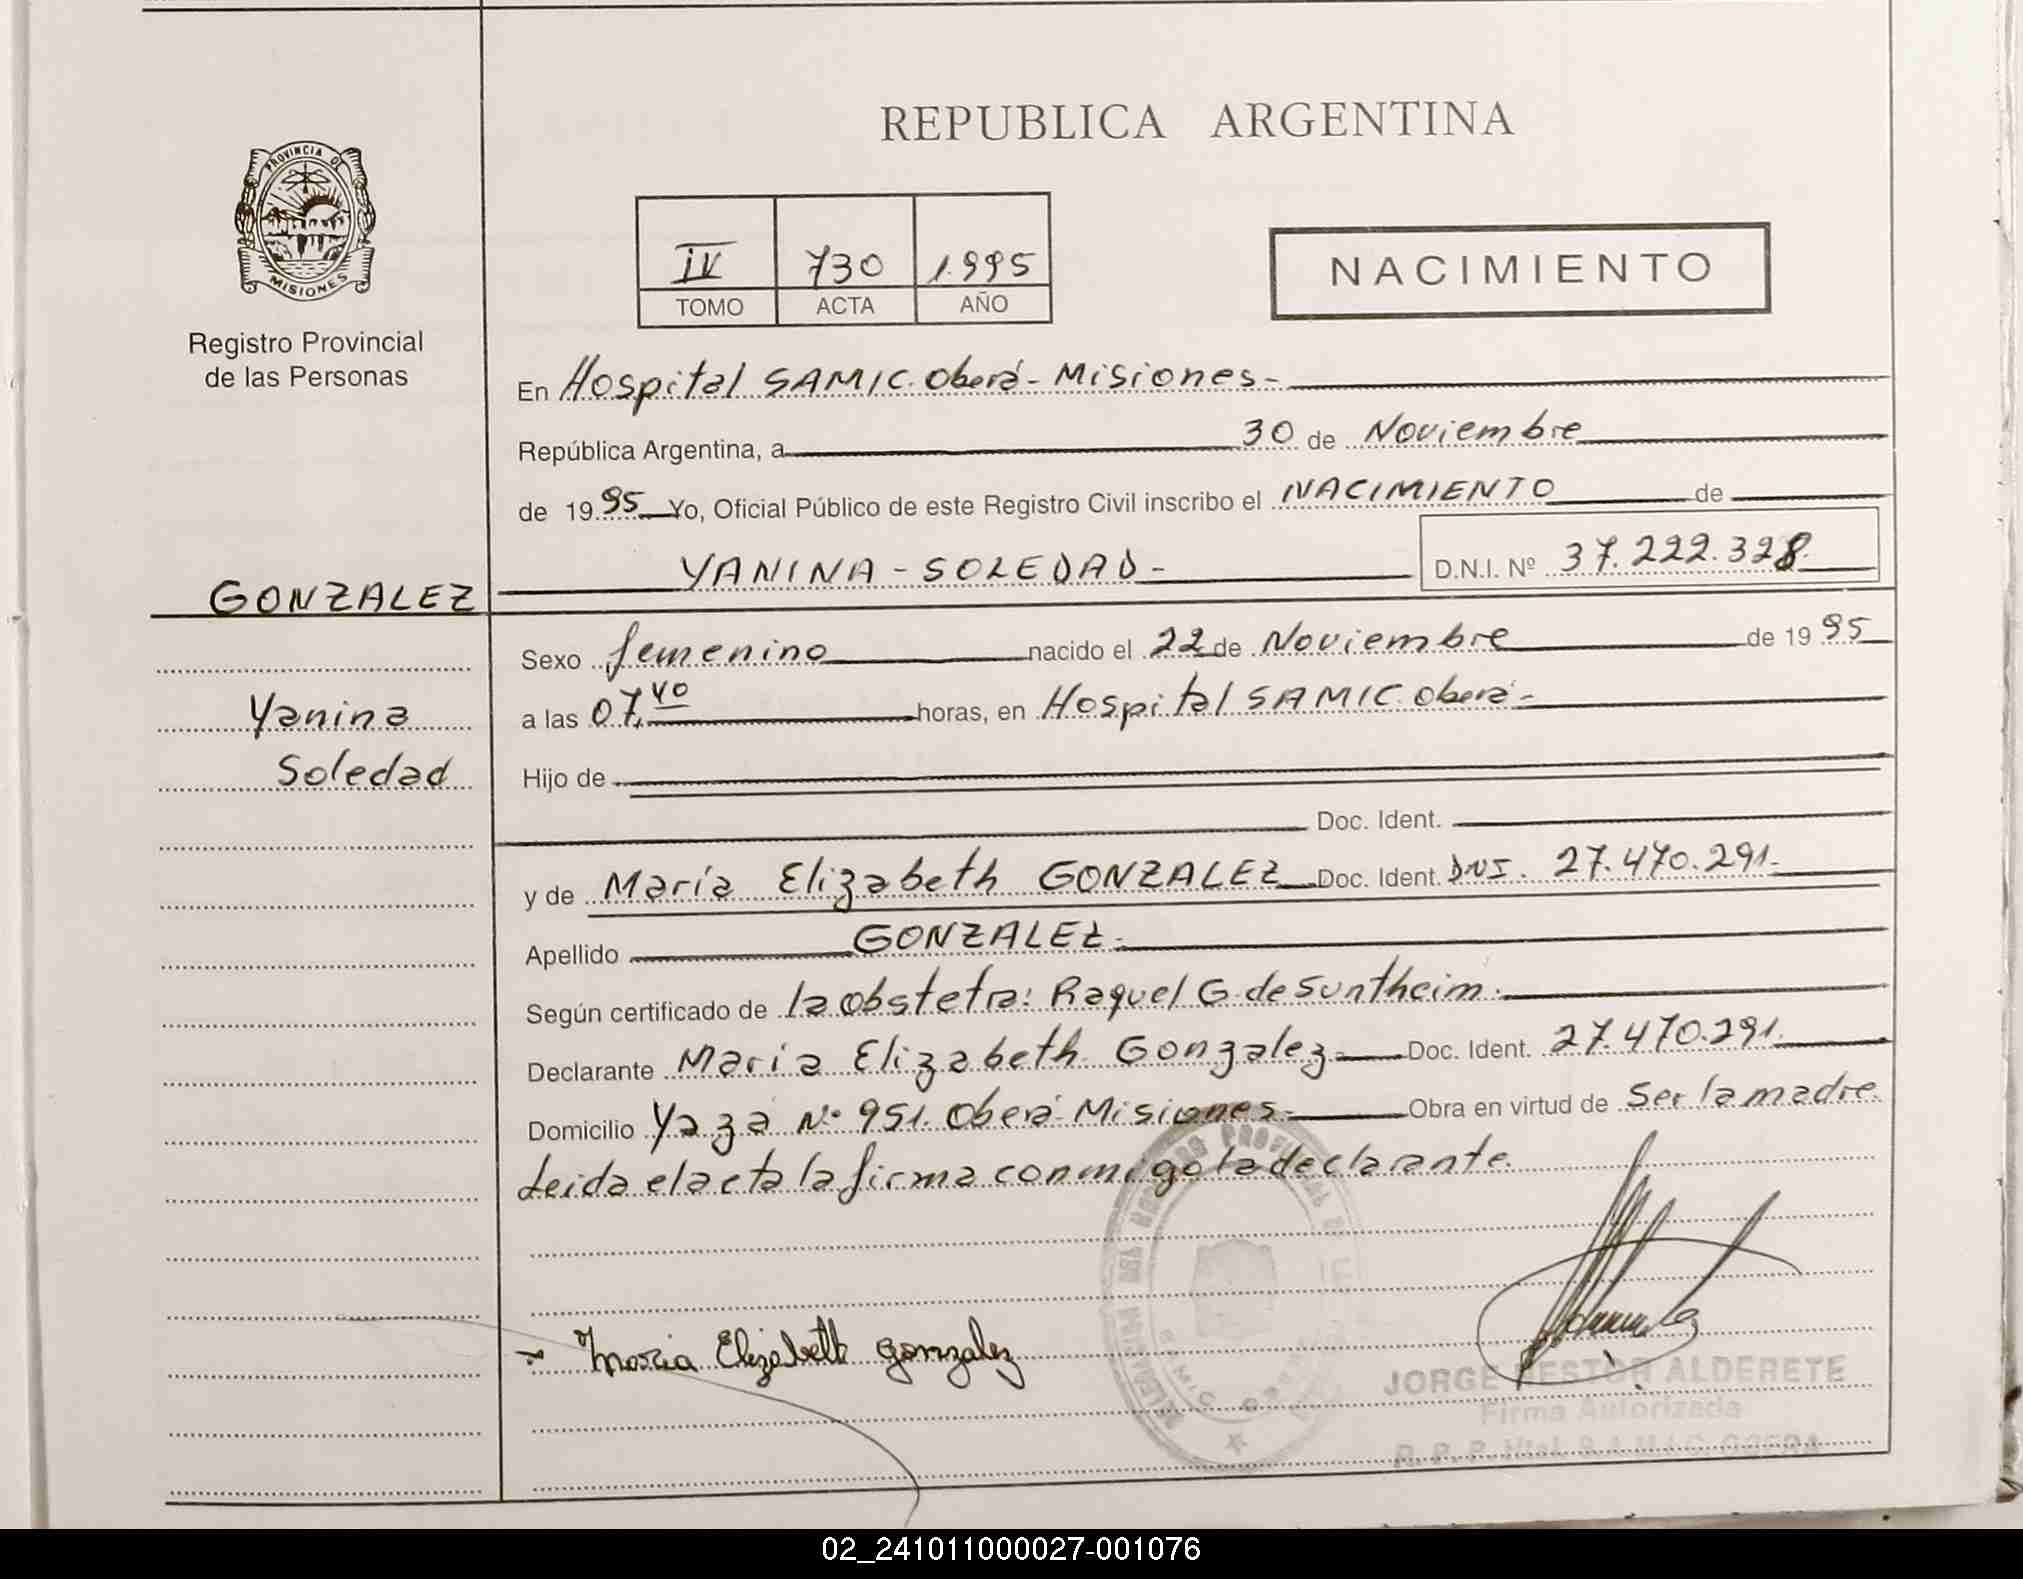 REPUBLICA ARGENTINA
PROVINCIA DE
MISIONES
Registro Provincial
de las Personas
IV 730 1.995
TOMO ACTA AÑO
NACIMIENTO
En Hospital SAMIC. Oberá - Misiones -
República Argentina, a 30 de Noviembre
de 19 95 Yo, Oficial Público de este Registro Civil inscribo el NACIMIENTO de
GONZALEZ YANINA - SOLEDAD - D.N.I. Nº 37.222.328.
Sexo femenino nacido el 22 de Noviembre de 19 95
Yanina
Soledad
a las 07.40 horas, en Hospital SAMIC. Oberá -
Hijo de
Doc. Ident.
y de María Elizabeth GONZALEZ Doc. Ident. DNI. 27.470.291-
Apellido GONZALEZ.
Según certificado de la obstetra: Raquel G. de Suntheim.
Declarante María Elizabeth Gonzalez - Doc. Ident. 27.470.291.
Domicilio Yazá Nº 951. Oberá - Misiones - Obra en virtud de ser la madre.
Leida el acta la firma conmigo la declarante.
Maria Elizabeth gonzalez
JORGE NESTOR ALDERETE
Firma Autorizada
R. P. P. Htal. S.A.M.I.C. OBERA
02_241011000027-001076